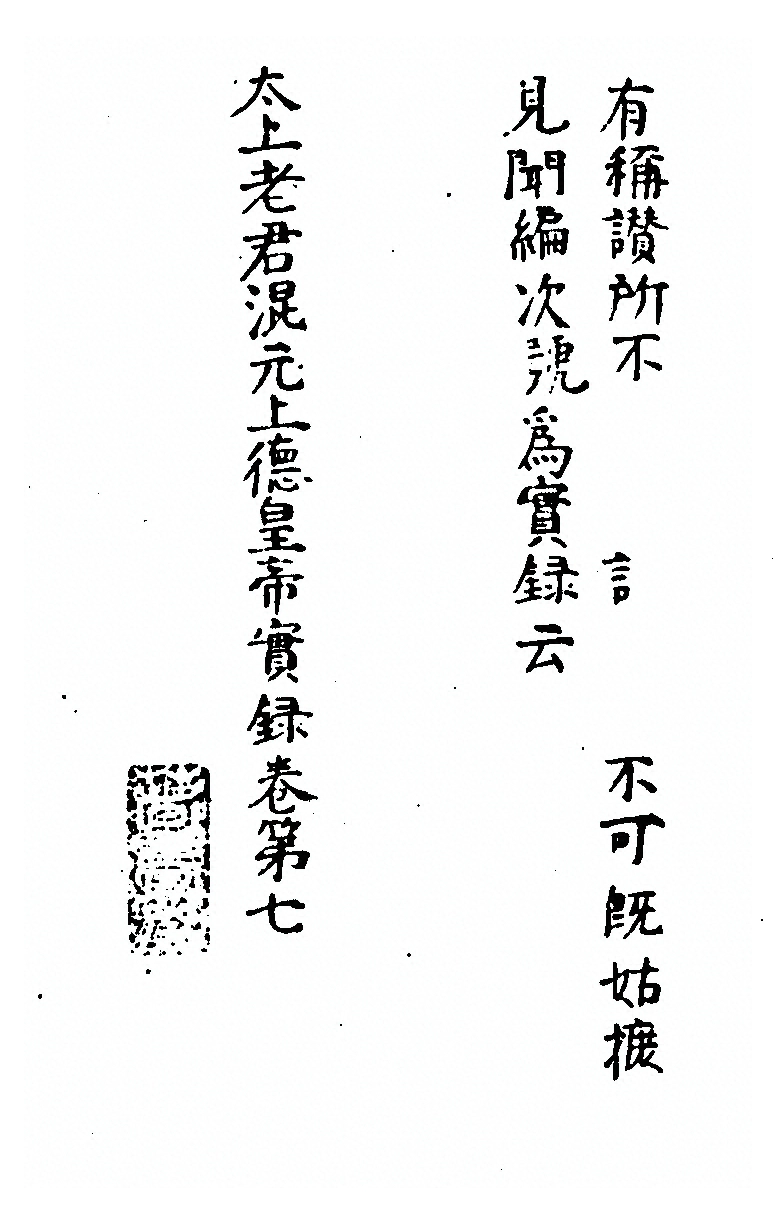 有稱讃所不　　言　　不可既姑摭
見聞編次號爲實録云
太上老君混元上德皇帝實録卷第七